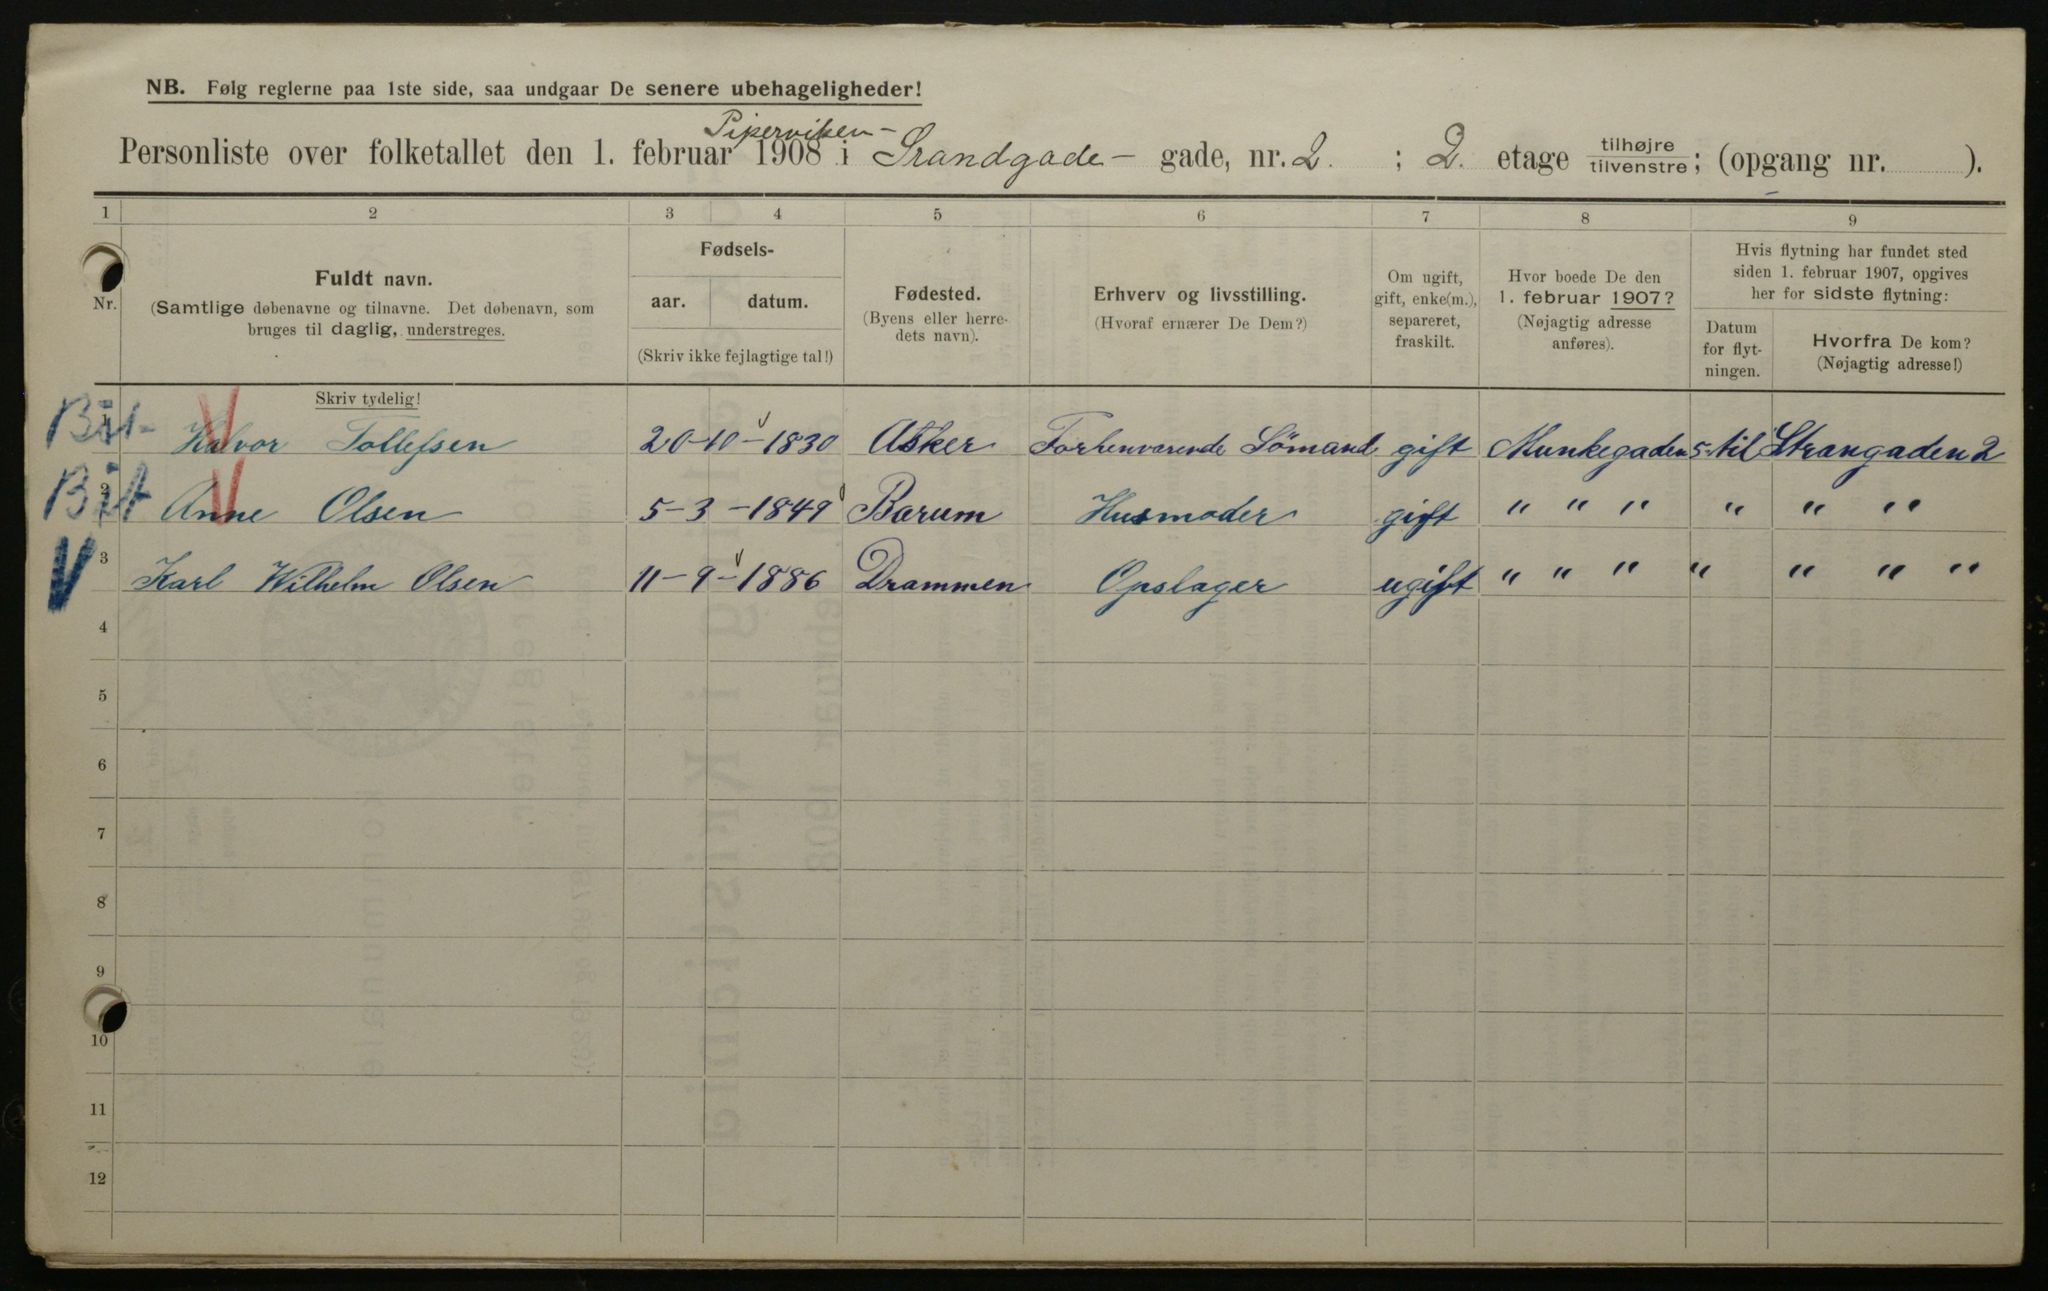 NB. Følg reglerne paa 1ste side, saa undgaar De senere ubehageligheder!
Piperviken-
Personliste over folketallet den 1. februar 1908 i Srandgade- gade, nr. 2. ; 2. etage tilhøjre/tilvenstre; (opgang nr. ).
1 2 3 4 5 6 7 8 9
Nr.
Fuldt navn.
(Samtlige døbenavne og tilnavne. Det døbenavn, som
bruges til daglig, understreges.
Skriv tydelig!
Fødsels-
aar. datum.
(Skriv ikke fejlagtige tal!)
Fødested.
(Byens eller herre-
dets navn).
Erhverv og livsstilling.
(Hvoraf ernærer De Dem?)
Om ugift,
gift, enke(m.),
separeret,
fraskilt.
Hvor boede De den
1. februar 1907?
(Nøjagtig adresse
anføres).
Hvis flytning har fundet sted
siden 1. februar 1907, opgives
her for sidste flytning:
Datum
for flyt-
ningen.
Hvorfra De kom?
(Nøjagtig adresse!)
1 Halvor Tollefsen 20-10-1830 Asker Forhenværende Sömand gift Munkegaden 5 til Strangaden 2
2 Anne Olsen 5-3-1849 Bærum Husmoder gift " " " " " "
3 Karl Wilhelm Olsen 11-9-1886 Drammen Opslager ugift " " " " " " "
4
5
6
7
8
9
10
11
12